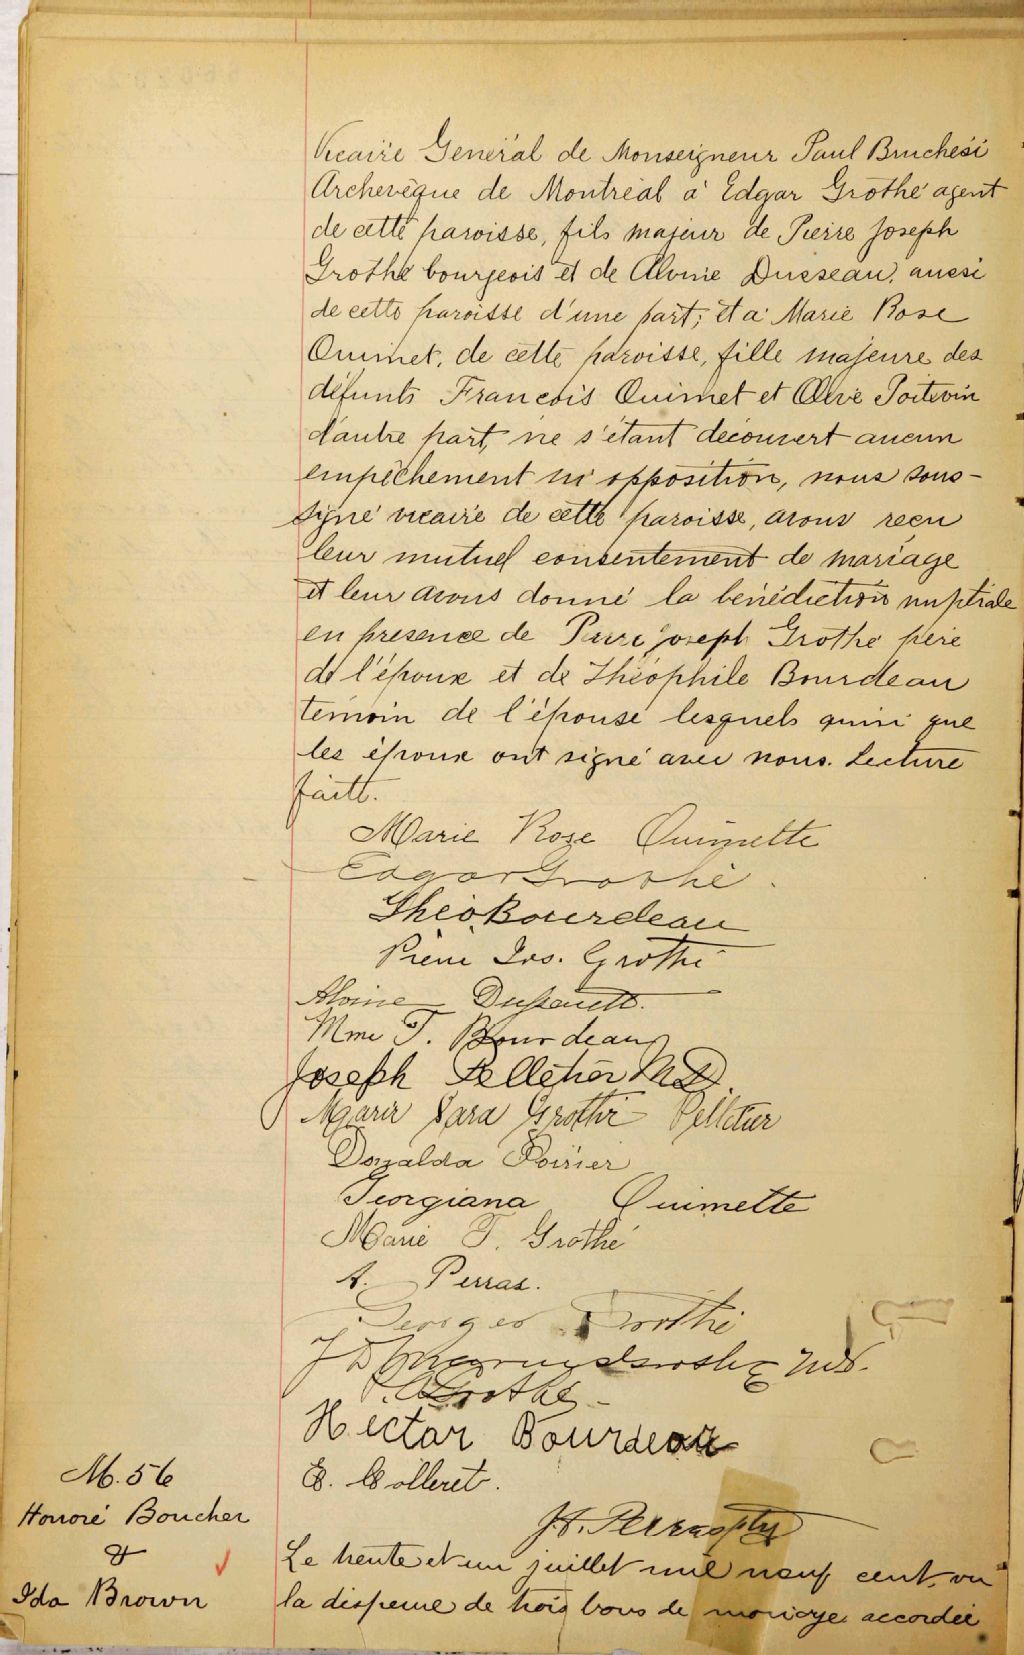 Vicaire Général de Monseigneur Paul Bruchési
Archevêque de Montréal à Edgar Grothé agent
de cette paroisse, fils majeur de Pierre Joseph
Grothé bourgeois et de Alvine Dusseau, aussi
de cette paroisse d'une part; et à Marie Rose
Ouimet, de cette paroisse, fille majeure des
défunts François Ouimet et Olive Poitevin
d'autre part, ne s'étant découvert aucun
empêchement ni opposition, nous sous-
signé vicaire de cette paroisse, avons reçu
leur mutuel consentement de mariage
et leur avons donné la bénédiction nuptiale
en présence de Pierre Joseph Grothé père
de l'époux et de Théophile Bourdeau
témoin de l'épouse lesquels ainsi que
les époux ont signé avec nous. Lecture
faite.
Marie Rose Ouimette
Edgar Grothé.
Théo Bourdeau
Pierre Jos. Grothé
Alvine Dussault.
Mme T. Bourdeau
Joseph Pelletier M.D.
Marie Sara Grothé Pelletier
Donalda Poirier
Georgiana Ouimette
Marie T. Grothé
A. Perras.
Georges Grothé
Grothé M.D.
Grothé
Hectar Bourdeau
E. Colleret.
M. 56
Honoré Boucher
&
Ida Brown
Le trente et un juillet mil neuf cent, vu
la dispense de trois bans de mariage accordée